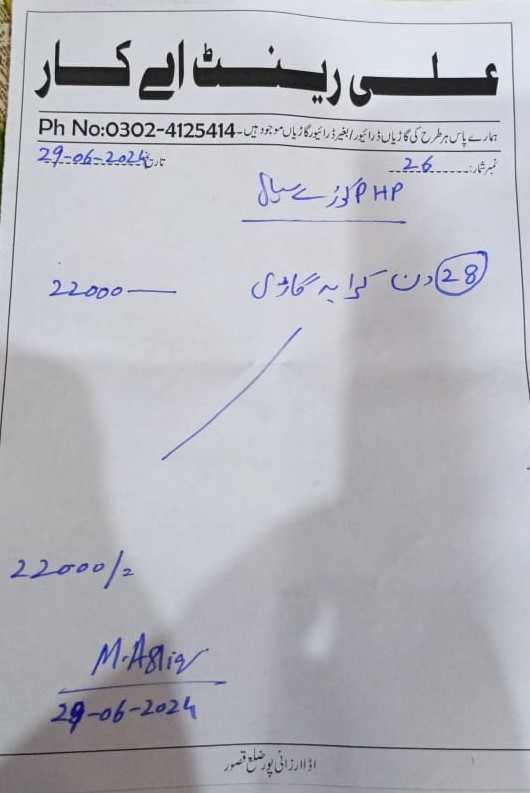 علی رینٹ اے کار
ہمارے پاس ہر طرح کی گاڑیاں ڈرائیور/بغیر ڈرائیور گاڑیاں موجود ہیں۔ Ph No:0302-4125414
نمبر شمار: 26 تاریخ 29-06-2024
PHP کوڑے سیال
28 دن کرایہ گاڑی 22000
22000/=
M. Ashiq
29-06-2024
اڈا ارزانی پور ضلع قصور